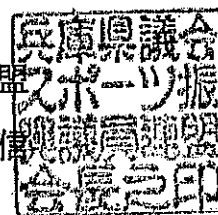 兵庫県議会
盟
スポーツ振
興議員連盟
会長之印